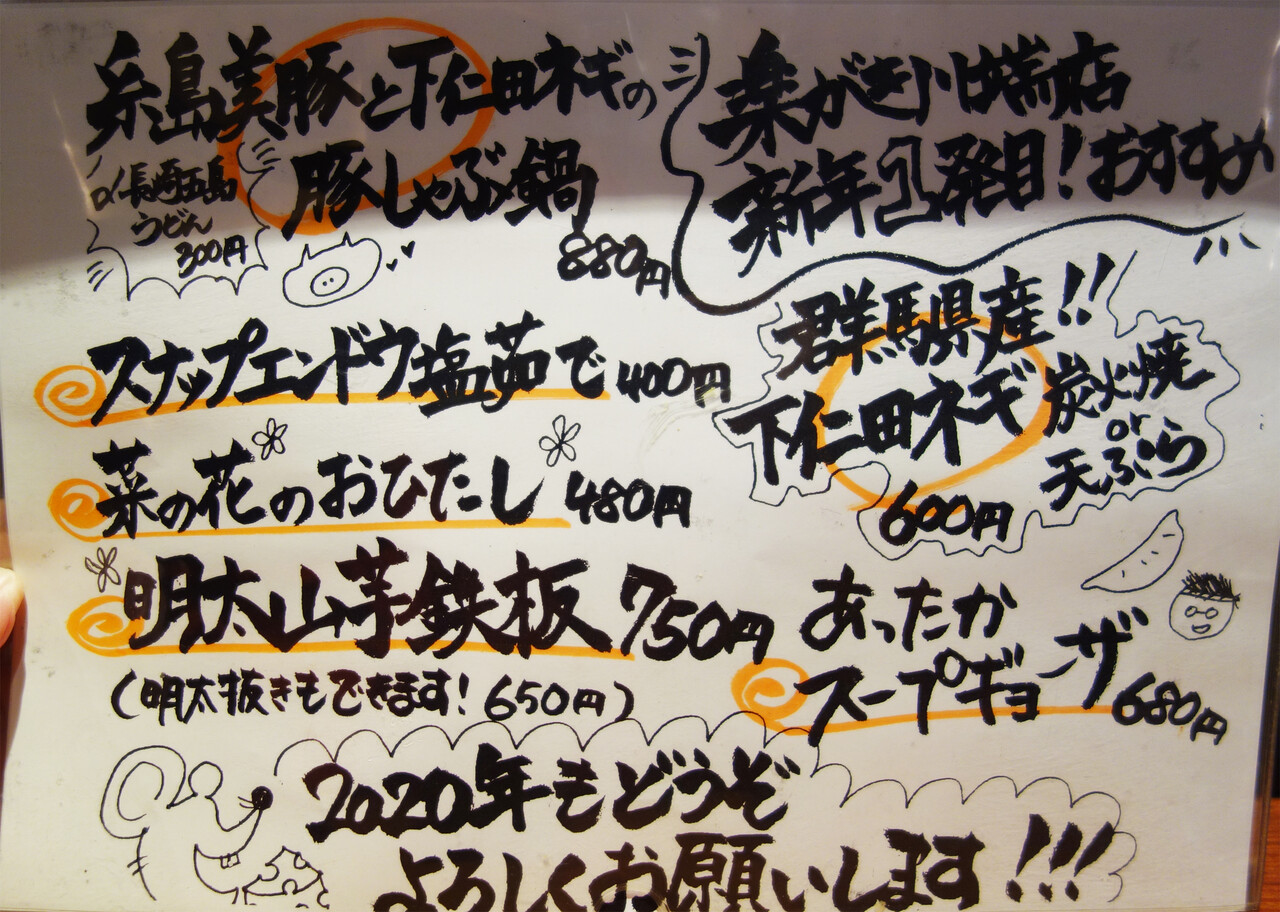 糸島美豚と下仁田ネギの
豚しゃぶ鍋
880円
長崎五島
うどん
300円
楽がき川端店
新年1発目!おすすめ
スナップエンドウ塩茹で 400円
菜の花のおひたし 480円
明太山芋鉄板 750円
(明太抜きもできます! 650円)
群馬県産!!
下仁田ネギ
炭火焼
or
天ぷら
600円
あったか
スープギョーザ 680円
2020年もどうぞ
よろしくお願いします!!!